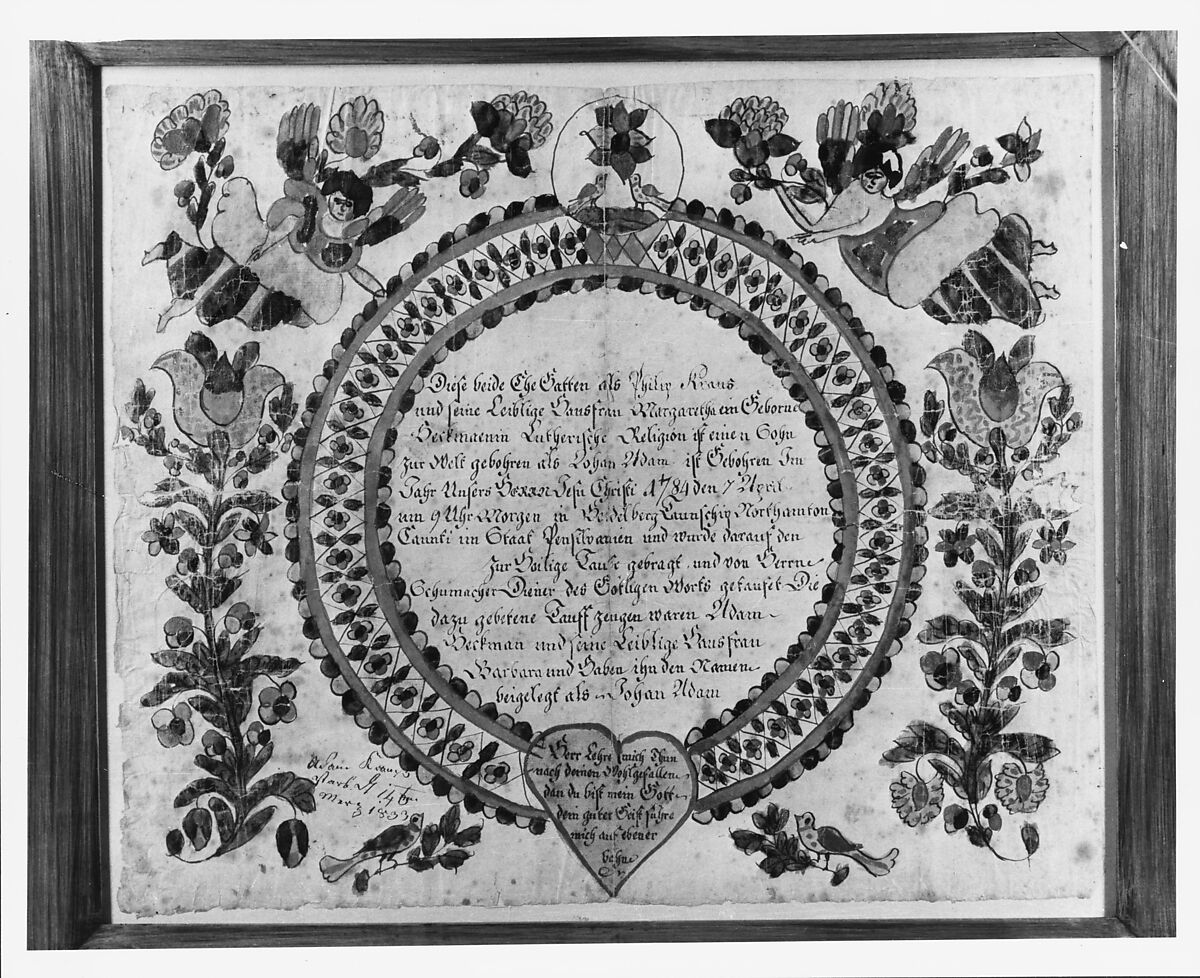 Diese beide Ehe Gatten als Philip Kraus
und seine Leiblige Hausfrau Margaretha ein Geborne
Beckmaenin Lutherische Religion ist einen Sohn
zur Welt gebohren als Johan Adam ist Gebohren Im
Jahr Unsers Herrn Jesu Christi 1784 den 7 April
um 9 Uhr Morgen in Heidelberg Taunschip Northamton
Caunti im Staat Pensilvanien und wurde darauf den
zur Heilige Taufe gebragt und von Herrn
Schumacher Diener des Götligen Worts getaufet Die
dazu gebetene Tauff zeugen waren Adam
Beckman und seine Leiblige Hausfrau
Barbara und Gaben ihn den Namen
beigelegt als Johan Adam
Herr Lehre mich Thun
nach deinen Wohlgefallen
dan du bist mein Gott
dein guter Geist führe
mich auf ebener
bahn
Adam Krauss
Starb d 14ten
Merz 1833